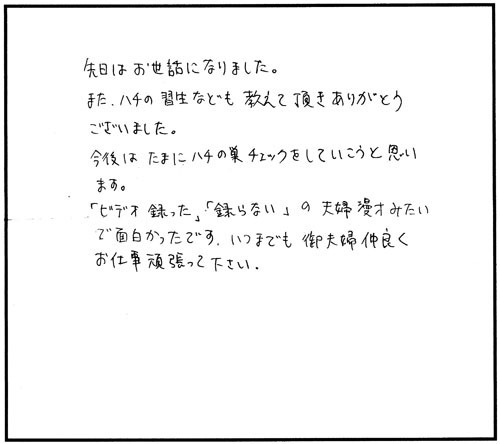 先日はお世話になりました。
また、ハチの習生なども教えて頂きありがとう
ございました。
今後はたまにハチの巣チェックをしていこうと思い
ます。
「ビデオ録った」「録らない」の夫婦漫才みたい
で面白かったです。いつまでも御夫婦仲良く
お仕事頑張って下さい。